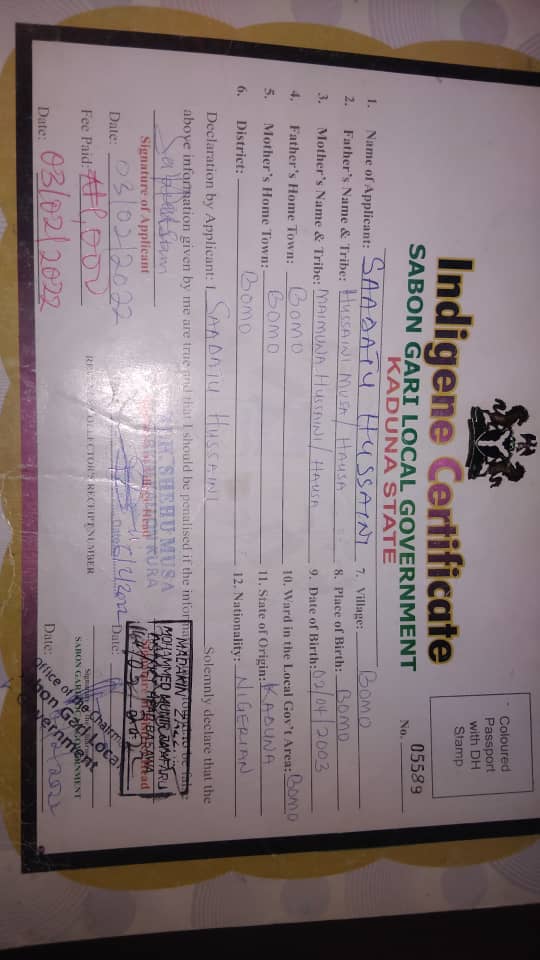 Coloured
Passport
with DH
Stamp
Indigene Certificate
SABON GARI LOCAL GOVERNMENT
KADUNA STATE
No. 05589
1. Name of Applicant: SAADATU HUSSAINI 7. Village: BOMO
2. Father's Name & Tribe: HUSSAINI MUSA/HAUSA 8. Place of Birth: BOMO
3. Mother's Name & Tribe: MAIMUNA HUSSAINI/HAUSA 9. Date of Birth: 02/04/2003
4. Father's Home Town: BOMO 10. Ward in the Local Gov't Area: BOMO
5. Mother's Home Town: BOMO 11. State of Origin: KADUNA
6. District: BOMO 12. Nationality: NIGERIAN
Declaration by Applicant: I SAADATU HUSSAINI Solemnly declare that the
above information given by me are true and that I should be penalised if the
SHEHU MUSA
Signature of Applicant
Date: 03/02/2022 Date:
Fee Paid: ₦1,000 RECEIPT NUMBER
Date: 03/02/2022 Date:
SABON GARI LOCAL GOVERNMENT
Office of the Chairman
Sabon Gari Local
Government